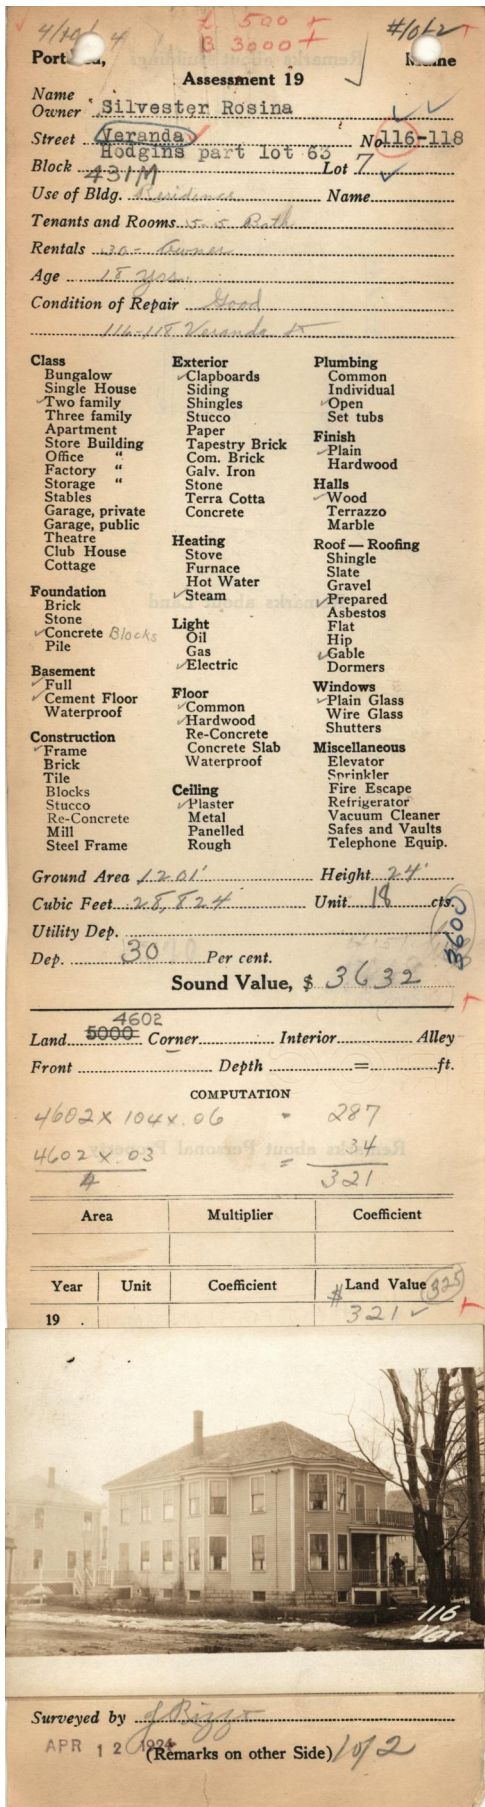 L. 500 +
B 3000 +
#1 of 2
Maine
Assessment 19
Name
Owner Silvester Rosina
Street Veranda No 116-118
Hodgins part lot 63
Block 431M Lot 7
Use of Bldg. Residence Name
Tenants and Rooms 5-5 Bath
Rentals 30- Owner
Age 18 yrs.
Condition of Repair Good
116-118 Veranda St
Class
Bungalow
Single House
✓Two family
Three family
Apartment
Store Building
Office "
Factory "
Storage "
Stables
Garage, private
Garage, public
Theatre
Club House
Cottage
Foundation
Brick
Stone
✓Concrete Blocks
Pile
Basement
✓Full
✓Cement Floor
Waterproof
Construction
✓Frame
Brick
Tile
Blocks
Stucco
Re-Concrete
Mill
Steel Frame
Exterior
✓Clapboards
Siding
Shingles
Stucco
Paper
Tapestry Brick
Com. Brick
Galv. Iron
Stone
Terra Cotta
Concrete
Heating
Stove
Furnace
Hot Water
✓Steam
Light
Oil
Gas
✓Electric
Floor
✓Common
✓Hardwood
Re-Concrete
Concrete Slab
Waterproof
Ceiling
✓Plaster
Metal
Panelled
Rough
Plumbing
Common
Individual
✓Open
Set tubs
Finish
✓Plain
Hardwood
Halls
✓Wood
Terrazzo
Marble
Roof — Roofing
Shingle
Slate
Gravel
✓Prepared
Asbestos
Flat
Hip
✓Gable
Dormers
Windows
✓Plain Glass
Wire Glass
Shutters
Miscellaneous
Elevator
Sprinkler
Fire Escape
Refrigerator
Vacuum Cleaner
Safes and Vaults
Telephone Equip.
Ground Area 1201' Height 24'
Cubic Feet 28,824 Unit 18 cts.
Utility Dep.
3600
Dep. 30 Per cent.
Sound Value, $ 3632
4602
Land 5000 Corner Interior Alley
Front Depth = ft.
COMPUTATION
4602 X 104 X .06 = 287
4602 X .03 = 34
4 321
Area Multiplier Coefficient
Year Unit Coefficient Land Value 325
19 # 321 ✓
116
Ver
Surveyed by J Rizzo
APR 12 1924
(Remarks on other Side) 1 of 2